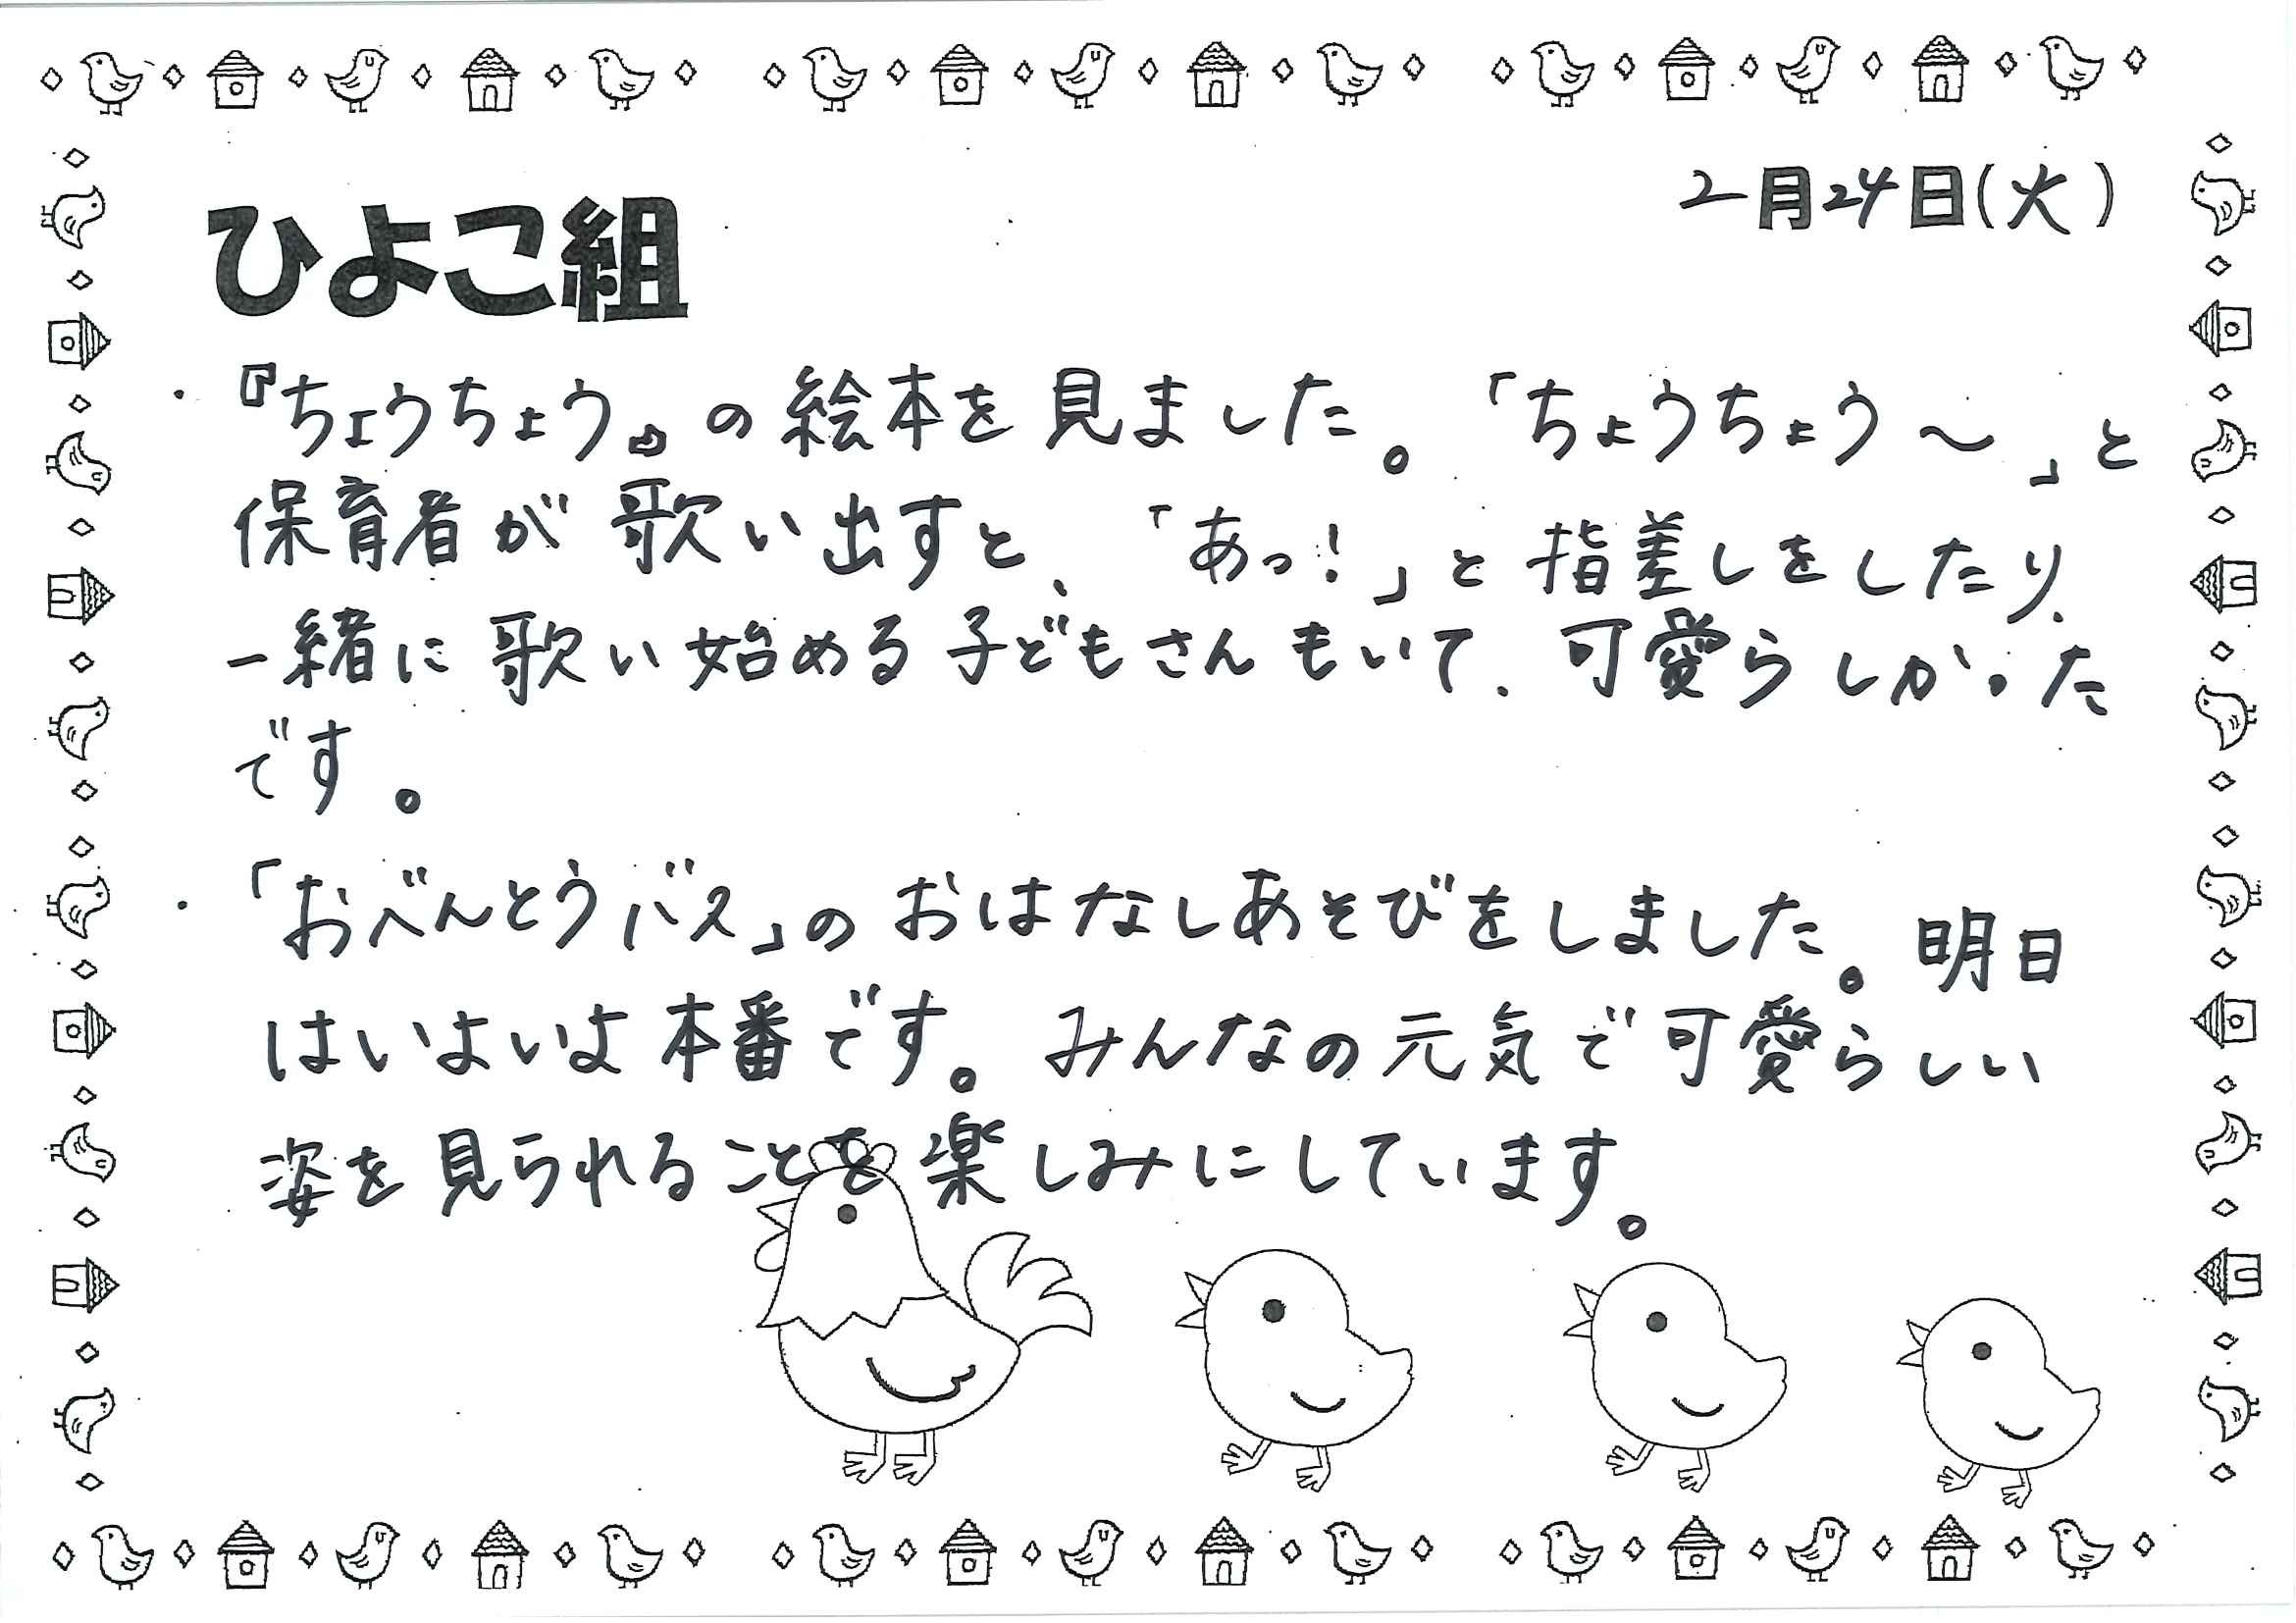 2月24日(火)
ひよこ組
・『ちょうちょう』の絵本を見ました。「ちょうちょう〜」と
保育者が歌い出すと、「あっ!」と指差しをしたり、
一緒に歌い始める子どもさんもいて、可愛らしかった
です。
・「おべんとうバス」のおはなしあそびをしました。明日
はいよいよ本番です。みんなの元気で可愛らしい
姿を見られることを楽しみにしています。